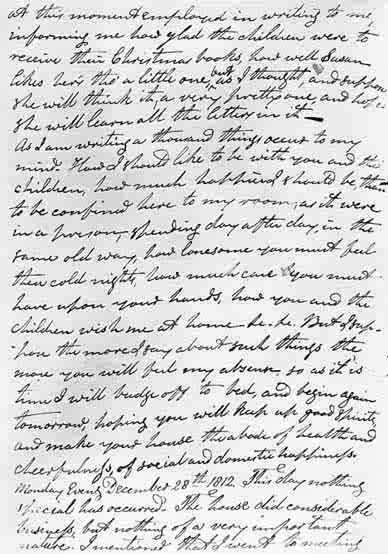 at this moment employed in writing to me,
informing me how glad the children were to
receive their Christmas books, how well Susan
likes her's tho' a little one, but as I thought and suppose
she will think it, a very pretty one, and hope
she will learn all the letters in it—
As I am writing a thousand things occur to my
mind. How I should like to be with you and the
children, how much happier I should be than
to be confined here to my room, as it were
in a prison, spending day after day, in the
same old way, how lonesome you must feel
these cold nights, how much care you must
have upon your hands, how you and the
children wish me at home &c. &c. But I sup-
pose the more I say about such things the
more you will feel my absence, so as it is
time I will budge off to bed, and begin again
tomorrow, hoping you will keep up good spirits,
and make your house the abode of health and
cheerfulness, of social and domestic happiness.
Monday Eveng December 28th 1812. This day nothing
special has occurred. The house did considerable
business, but nothing of a very important
nature. I mentioned that I went to meeting